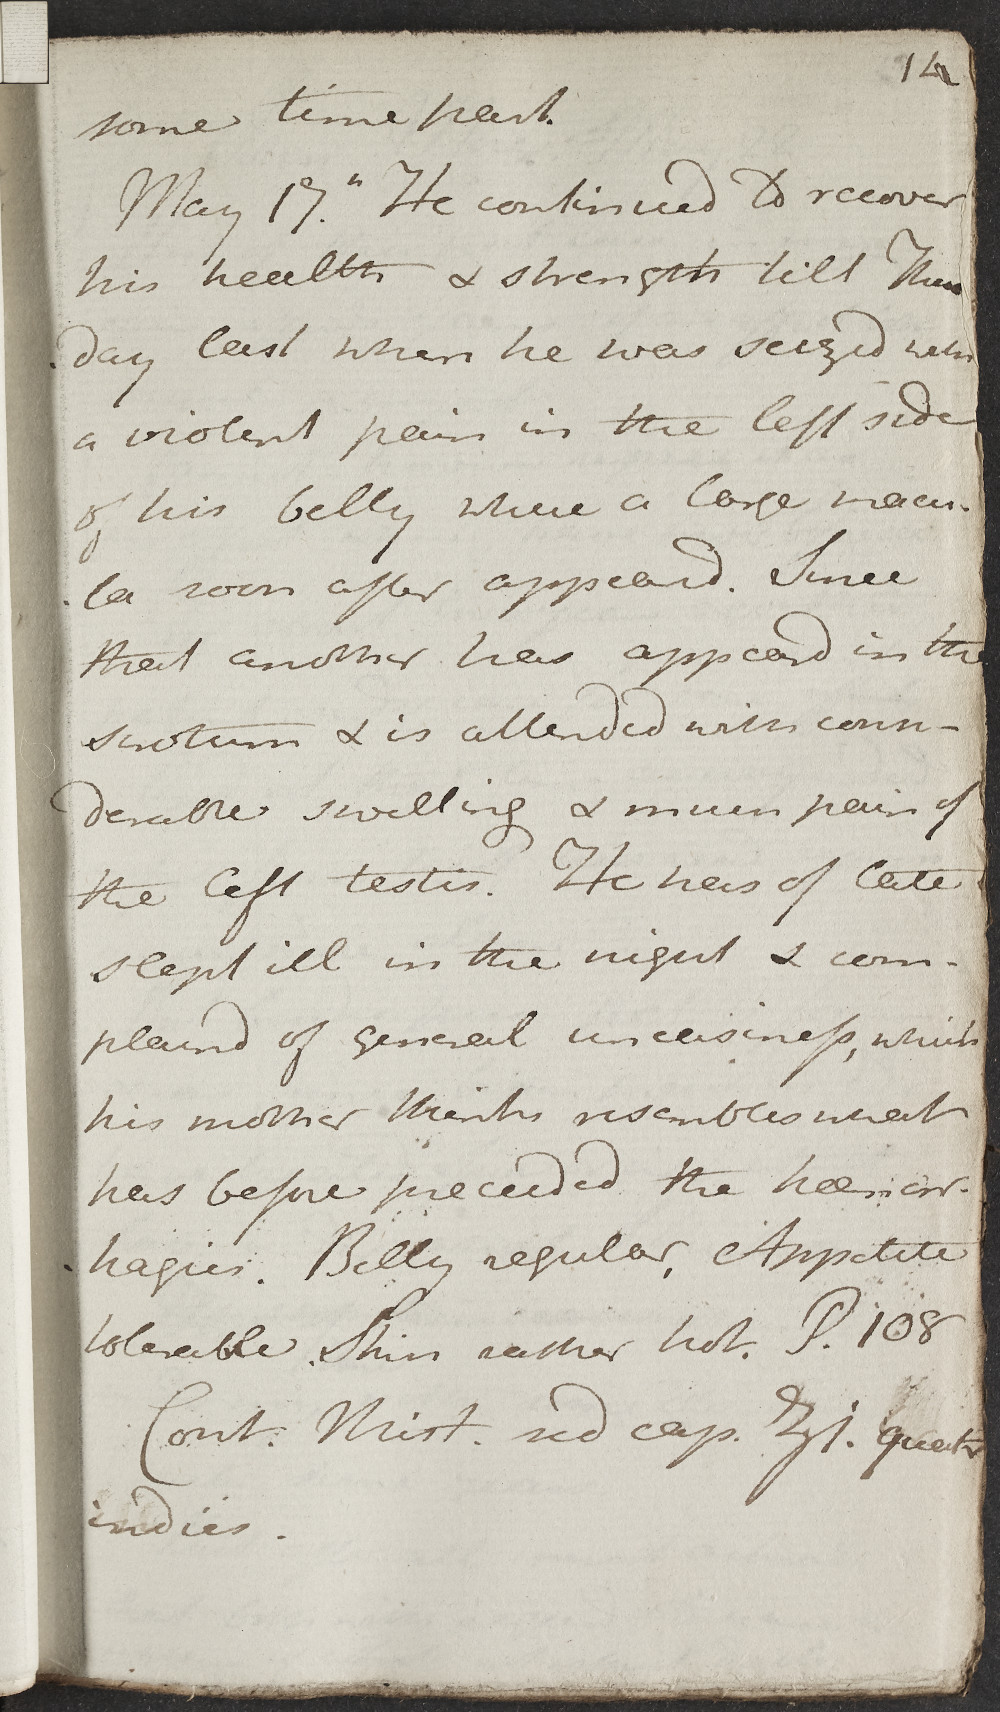 14
some time past.
May 17.th He continued to recover
his health & strength till Thurs
day last when he was seized with
a violent pain in the left side
of his belly where a large macu-
la soon after appeard. Since
that another has appeard in the
scrotum & is attended with consi-
derable swelling & much pain of
the left testis. He has of late
slept ill in the night & com-
plaind of general uneasiness, which
his mother thinks resembles what
has before preceeded the hæmorr-
hagies. Belly regular, Appetite
tolerable. Skin rather hot. P. 108
Cont. Mist. sed cap. ℥j. quater
indies.